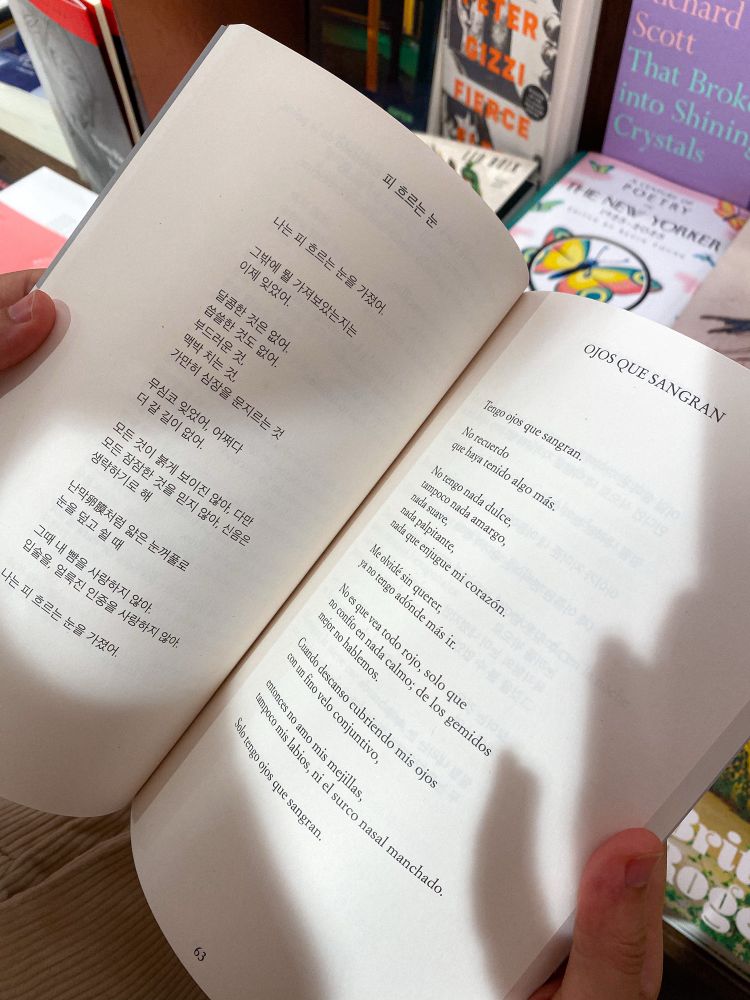 피 흐르는 눈
나는 피 흐르는 눈을 가졌어.
그밖에 뭘 가져보았는지는
이제 잊었어.
달콤한 것은 없어.
씁쓸한 것도 없어.
부드러운 것,
맥박 치는 것,
가만히 심장을 문지르는 것
무심코 잊었어, 어쩌다
더 갈 길이 없어.
모든 것이 붉게 보이진 않아, 다만
모든 잠잠한 것을 믿지 않아, 신음은
생략하기로 해
난막卵膜처럼 얇은 눈꺼풀로
눈을 덮고 쉴 때
그때 내 뺨을 사랑하지 않아.
입술을, 얼룩진 인중을 사랑하지 않아.
나는 피 흐르는 눈을 가졌어.
OJOS QUE SANGRAN
Tengo ojos que sangran.
No recuerdo
que haya tenido algo más.
No tengo nada dulce,
tampoco nada amargo,
nada suave,
nada palpitante,
nada que enjugue mi corazón.
Me olvidé sin querer,
ya no tengo adónde más ir.
No es que vea todo rojo, solo que
no confío en nada calmo; de los gemidos
mejor no hablemos.
Cuando descanso cubriendo mis ojos
con un fino velo conjuntivo,
entonces no amo mis mejillas,
tampoco mis labios, ni el surco nasal manchado.
Solo tengo ojos que sangran.
63
PETER
GIZZI
FIERCE
Richard
Scott
That Brok
into Shining
Crystals
A CENTURY OF
POETRY
IN
THE NEW YORKER
1925-2025